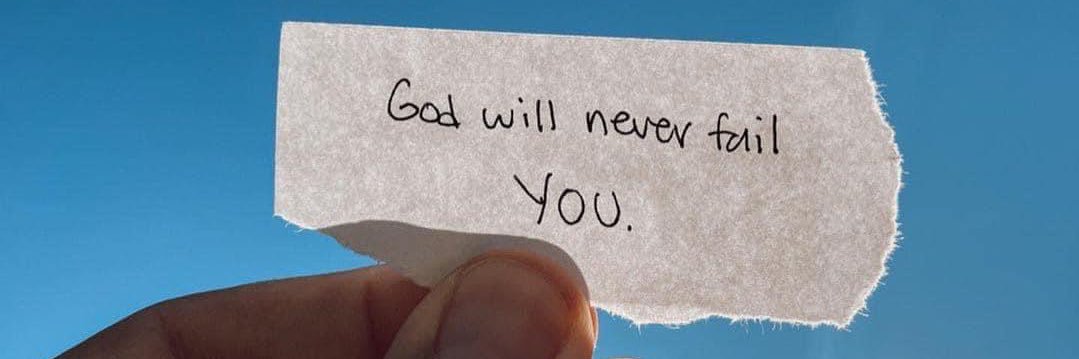 God will never fail
YOU.